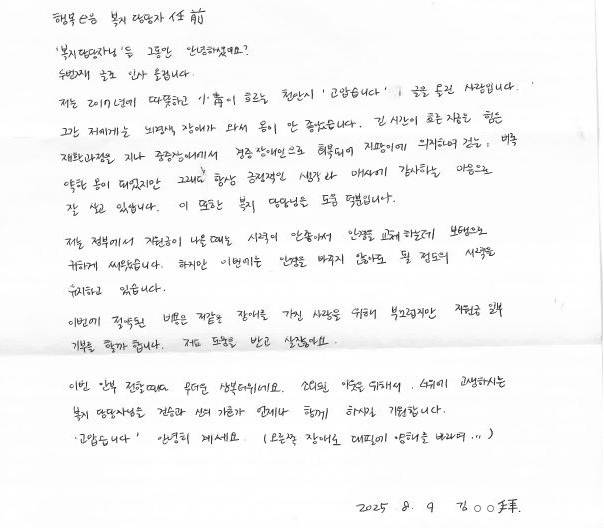 행복e음 복지 담당자 任前
'복지담당자님'들 그동안 안녕하셨어요?
두번째 글로 인사 올립니다.
저는 2017년에 따뜻하고 人情이 흐르는 천안시 '고맙습니다'! 글을 올린 사람입니다.
그간 저에게는 뇌경색 장애가 와서 몸이 안 좋았습니다. 긴 시간이 흐른 지금은 힘든
재활과정을 지나 중증장애에서 경증장애인으로 회복되어 지팡이에 의지하여 걷는, 비록
약한 몸이 되었지만 그래도 항상 긍정적인 생각과 매사에 감사하는 마음으로
잘 살고 있습니다. 이 또한 복지 담당님을 도움 덕분입니다.
저는 정부에서 지원금이 나올때는 시력이 안좋아서 안경을 교체하는데 보탬으로
귀하게 써왔습니다. 하지만 이번에는 안경을 바꾸지 않아도 될 정도의 시력을
유지하고 있습니다.
이번에 절약된 비용은 저같은 장애를 가진 사람을 위해 부끄럽지만 지원금 일부
기부를 할까 합니다. 저도 도움을 받고 살잖아요.
이번 안부 전할때가 무더운 삼복더위네요. 소외된 이웃을 위해서, 너위에 고생하시는
복지 담당자님을 건승과 신의 가름가 언제나 함께 하시길 기원합니다.
'고맙습니다' 안녕히 계세요. (오른쪽 장애로 대필에 양해를 바라며...)
2025 8. 9 김○○拜.